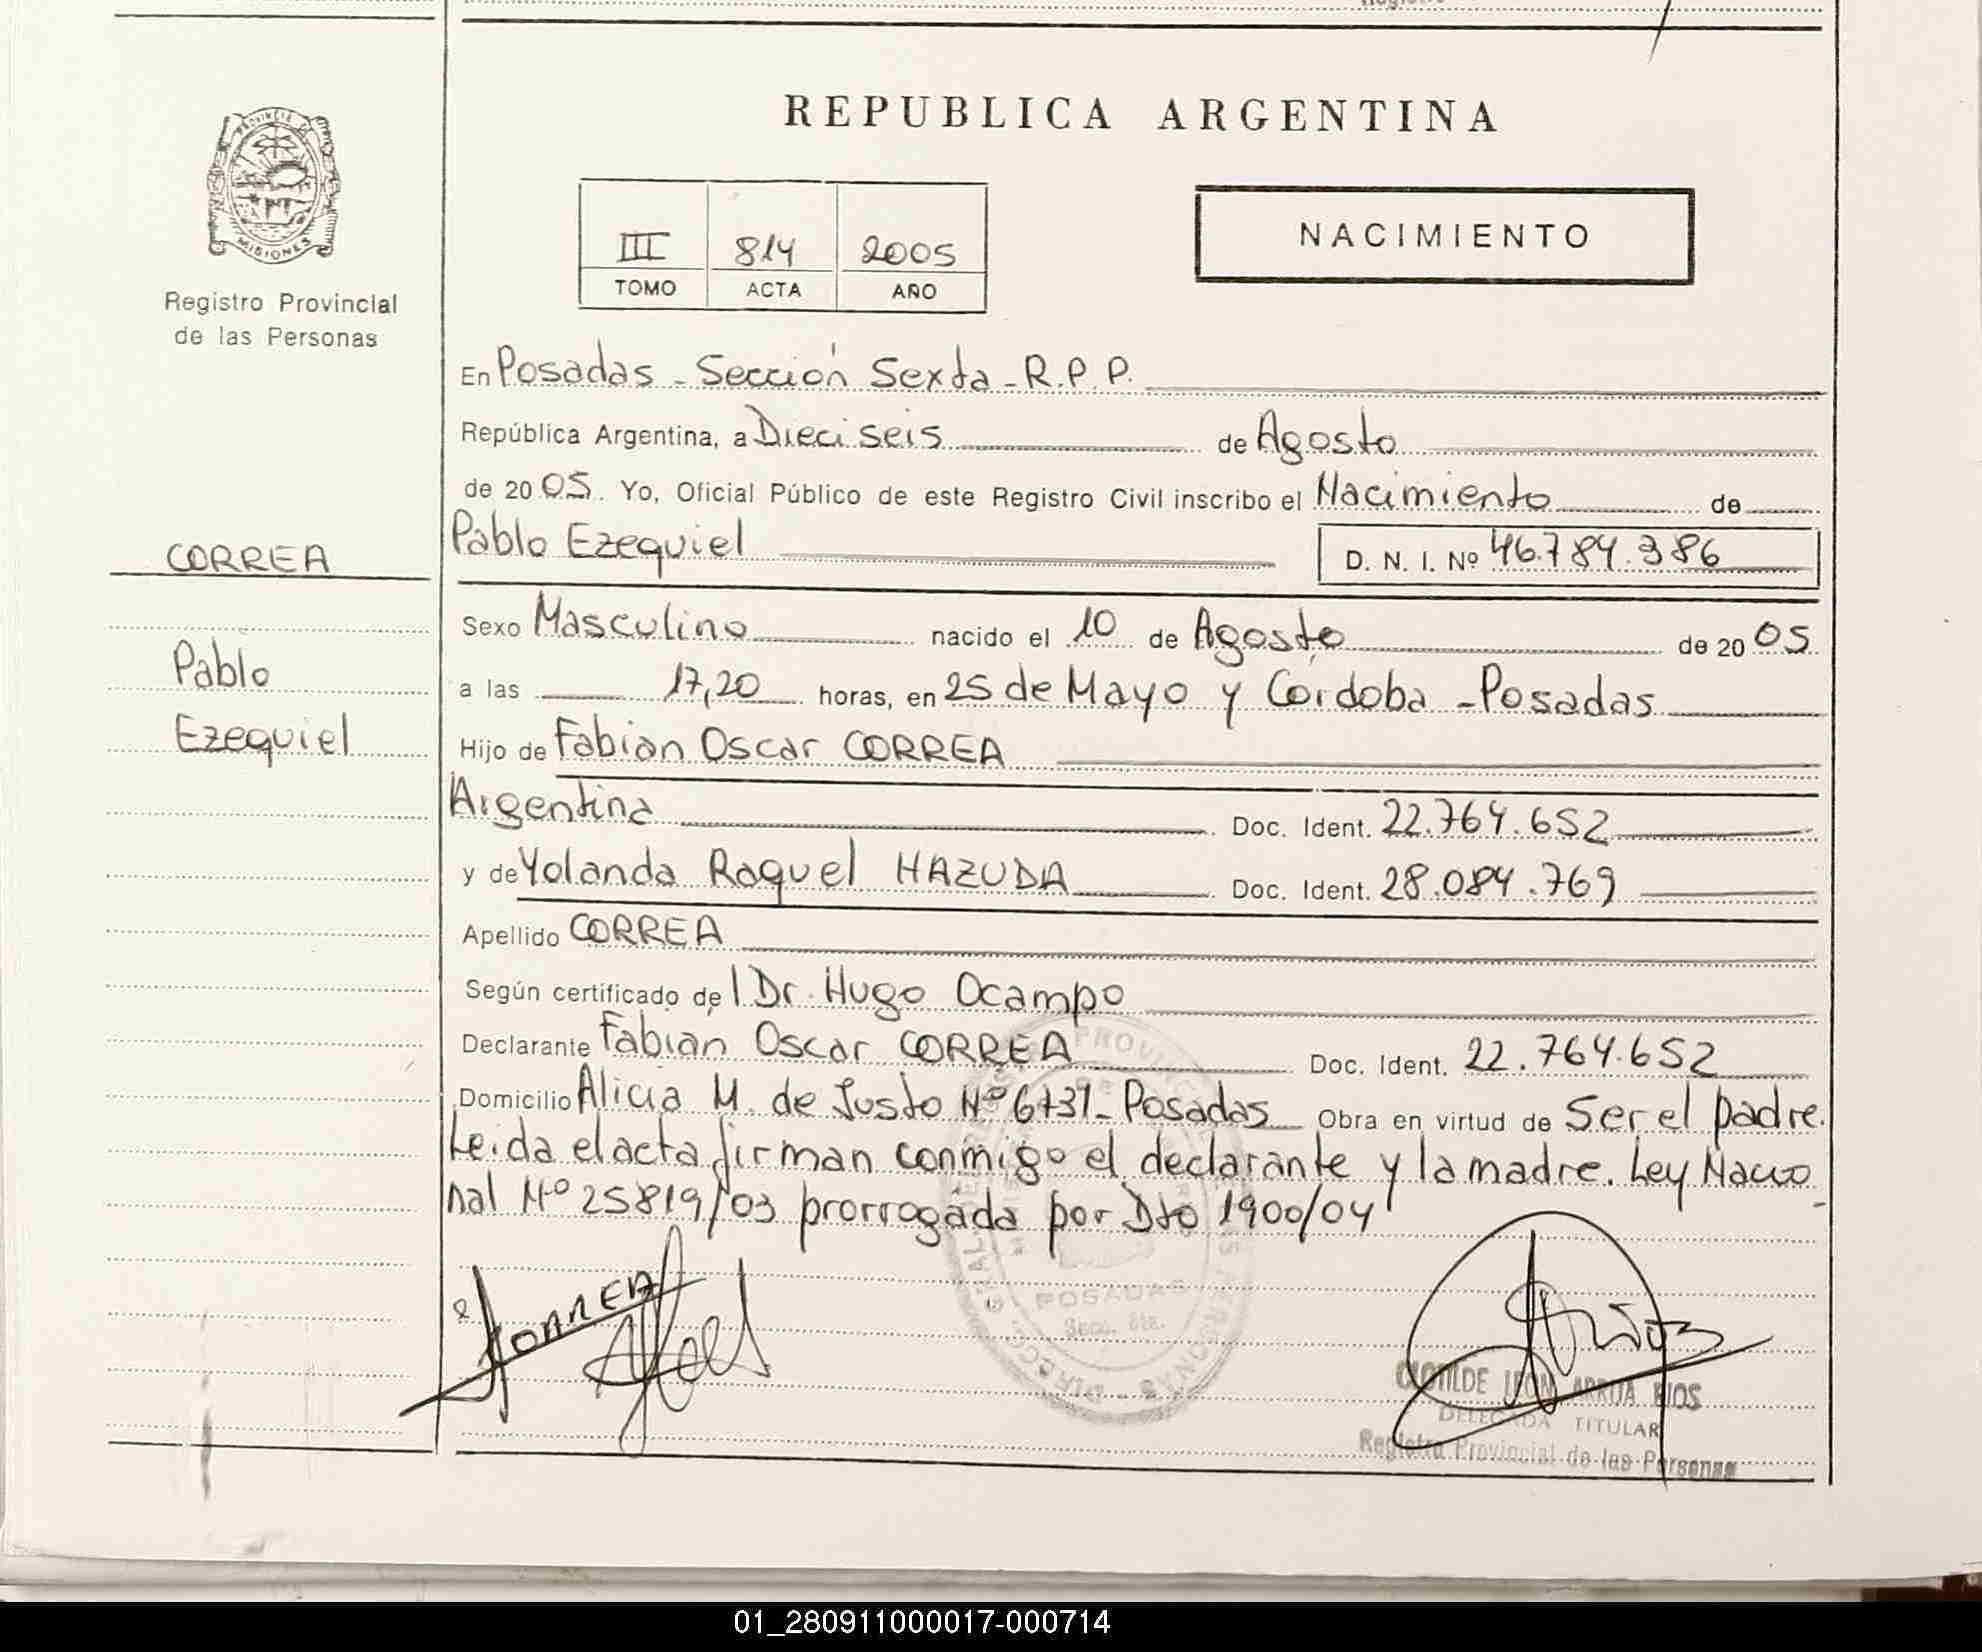 REPUBLICA ARGENTINA
PROVINCIA DE
MISIONES
Registro Provincial
de las Personas
III 814 2005
TOMO ACTA AÑO
NACIMIENTO
En Posadas - Sección Sexta - R.P.P.
República Argentina, a Dieciseis de Agosto
de 20 05. Yo, Oficial Público de este Registro Civil inscribo el Nacimiento de
Pablo Ezequiel D. N. I. Nº 46.784.386
CORREA
Pablo
Ezequiel
Sexo Masculino nacido el 10 de Agosto de 20 05
a las 17,20 horas, en 25 de Mayo y Cordoba - Posadas
Hijo de Fabian Oscar CORREA
Argentina Doc. Ident. 22.764.652
y de Yolanda Raquel HAZUDA Doc. Ident. 28.084.769
Apellido CORREA
Según certificado de l Dr. Hugo Ocampo
Declarante Fabian Oscar CORREA Doc. Ident. 22.764.652
Domicilio Alicia M. de Justo Nº 6731 - Posadas Obra en virtud de Ser el padre.
Leida el acta firman conmigo el declarante y la madre. Ley Nacio
nal Nº 25819/03 prorrogada por Dto 1900/04
CORREA
POSADAS
Secc. 6ta.
CLOTILDE LEON ARRUA RIOS
DELEGADA TITULAR
Registro Provincial de las Personas
01_280911000017-000714